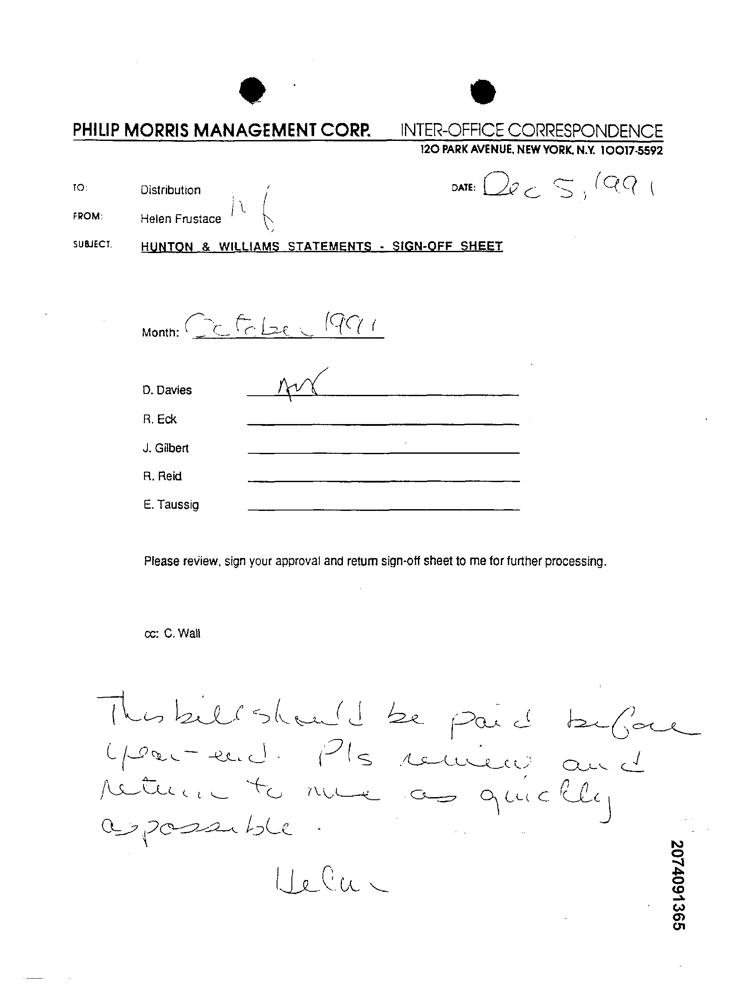 PHILIP MORRIS MANAGEMENT CORP. INTER-OFFICE CORRESPONDENCE
120 PARK AVENUE, NEW YORK, N.Y. 10017-5592
TO: Distribution DATE: Dec 5, 1991
FROM: Helen Frustace hf
SUBJECT. HUNTON & WILLIAMS STATEMENTS - SIGN-OFF SHEET
Month: October 1991
D. Davies
R. Eck
J. Gilbert
R. Reid
E. Taussig
Please review, sign your approval and return sign-off sheet to me for further processing.
cc: C. Wall
This bill should be paid before
year-end. Pls review and
return to me as quickly
as possible.
Helen
2074091365